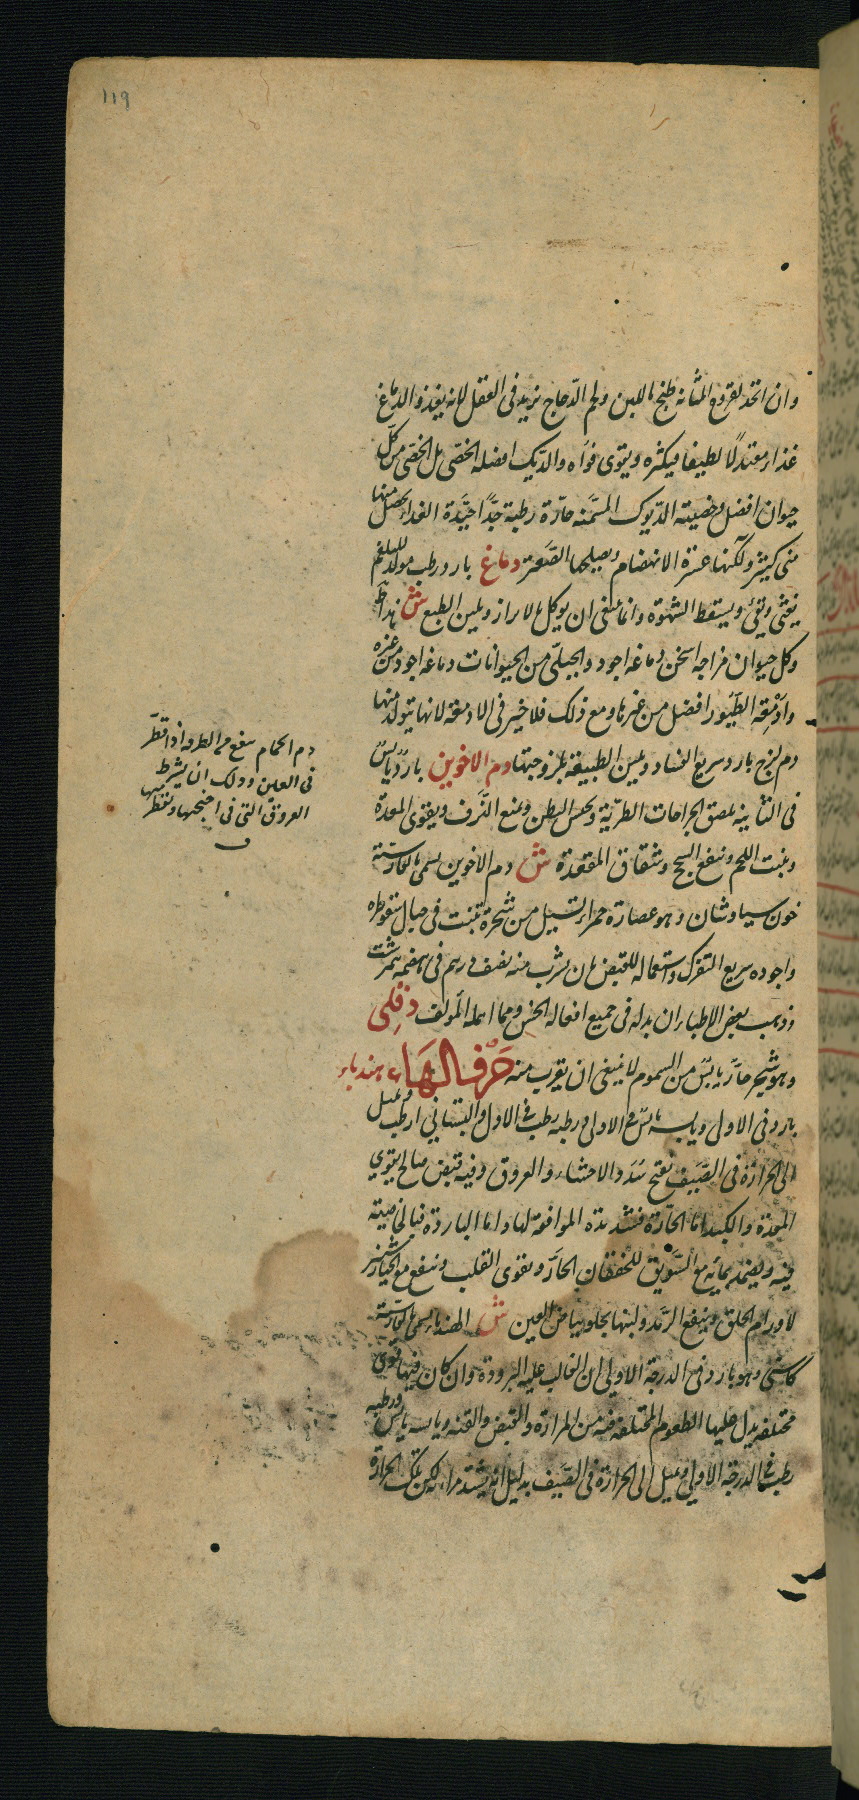 ١١٩
وان اتخذ لقروح المثانه طبخ باللبن ولحم الدجاج يزيد فى العقل لانه يغذو الدماغ
غذاء معتدلا لطيفا فيكثره ويقوى قواه والديك افضله الخصى بل الخصى من كل
حيوان افضل وخصية الديوك المسمنه حارة رطبة جدا جيدة الغذاء يحصل منها
منى كثير ولكنها عسرة الانهضام ويصلحها الصعتر دماغ بارد رطب مولد للبلغم
يغثى ويقئ ويسقط الشهوة وانما ينبغى ان يوكل بالابازير ويلين الطبع ش
وكل حيوان مزاجه اسخن دماغه اجود والجبلى من الحيوانات دماغه اجود من غيره
وادمغة الطيور افضل من غيرها ومع ذلك فلا خير فى الادمغة لانها يتولد منها
دم لزج بارد سريع الفساد ويلين الطبيعة بلزوجتها دم الاخوين بارد يابس
فى الثانية يلصق الجراحات الطرية ويحبس البطن ويمنع النزف ويقوى المعدة
وينبت اللحم وينفع السحج وشقاق المقعدة ش دم الاخوين يسمى بالفارسية
خون سياوشان وهو عصارة حمراء تسيل من شجرة تنبت فى جبال سقوطره
واجوده سريع التفرك واستعماله للقبض بان يشرب منه نصف درهم فى بيضة نيمرشت
وذهب بعض الاطباء ان بدله فى جميع افعاله الخس ومما اهمله المولف دفلى
وهو شجر حار يابس من السموم لا ينبغى ان يقرب منه حرف الهاء هندباء
بارد فى الاول ويابسه يابس فى الاولى ورطبه رطب فى الاول والبستانى ارطب ويميل
الى الحرارة فى الصيف يفتح سدد الاحشاء والعروق وفيه قبض صالح يقوى
المعدة والكبد اما الحارة فشديدة الموافقة لها واما الباردة فبالخاصية
فيه ويضمد بمايه مع السويق للخفقان الحار ويقوى القلب وينفع مع الخيار شنبر
لاورام الحلق وينفع الرمد ولبنها يجلو بياض العين ش الهندباء يسمى بالفارسية
كاسنى وهو بارد فى الدرجة الاولى لان الغالب عليه البرودة وان كان فيها قوى
مختلفه يدل عليها الطعوم المختلفة فيه من المرارة والقبض والتفه ويابسه يابس ورطبه
رطب فى الدرجة الاولى ويميل الى الحرارة فى الصيف بدليل انه يشتد مرارته لكن تلك الحرارة
دم الحمام ينفع من الطرفه اذا قطر
فى العين وذلك ان يشرط
العروق التى فى اجنحتها ويقطر